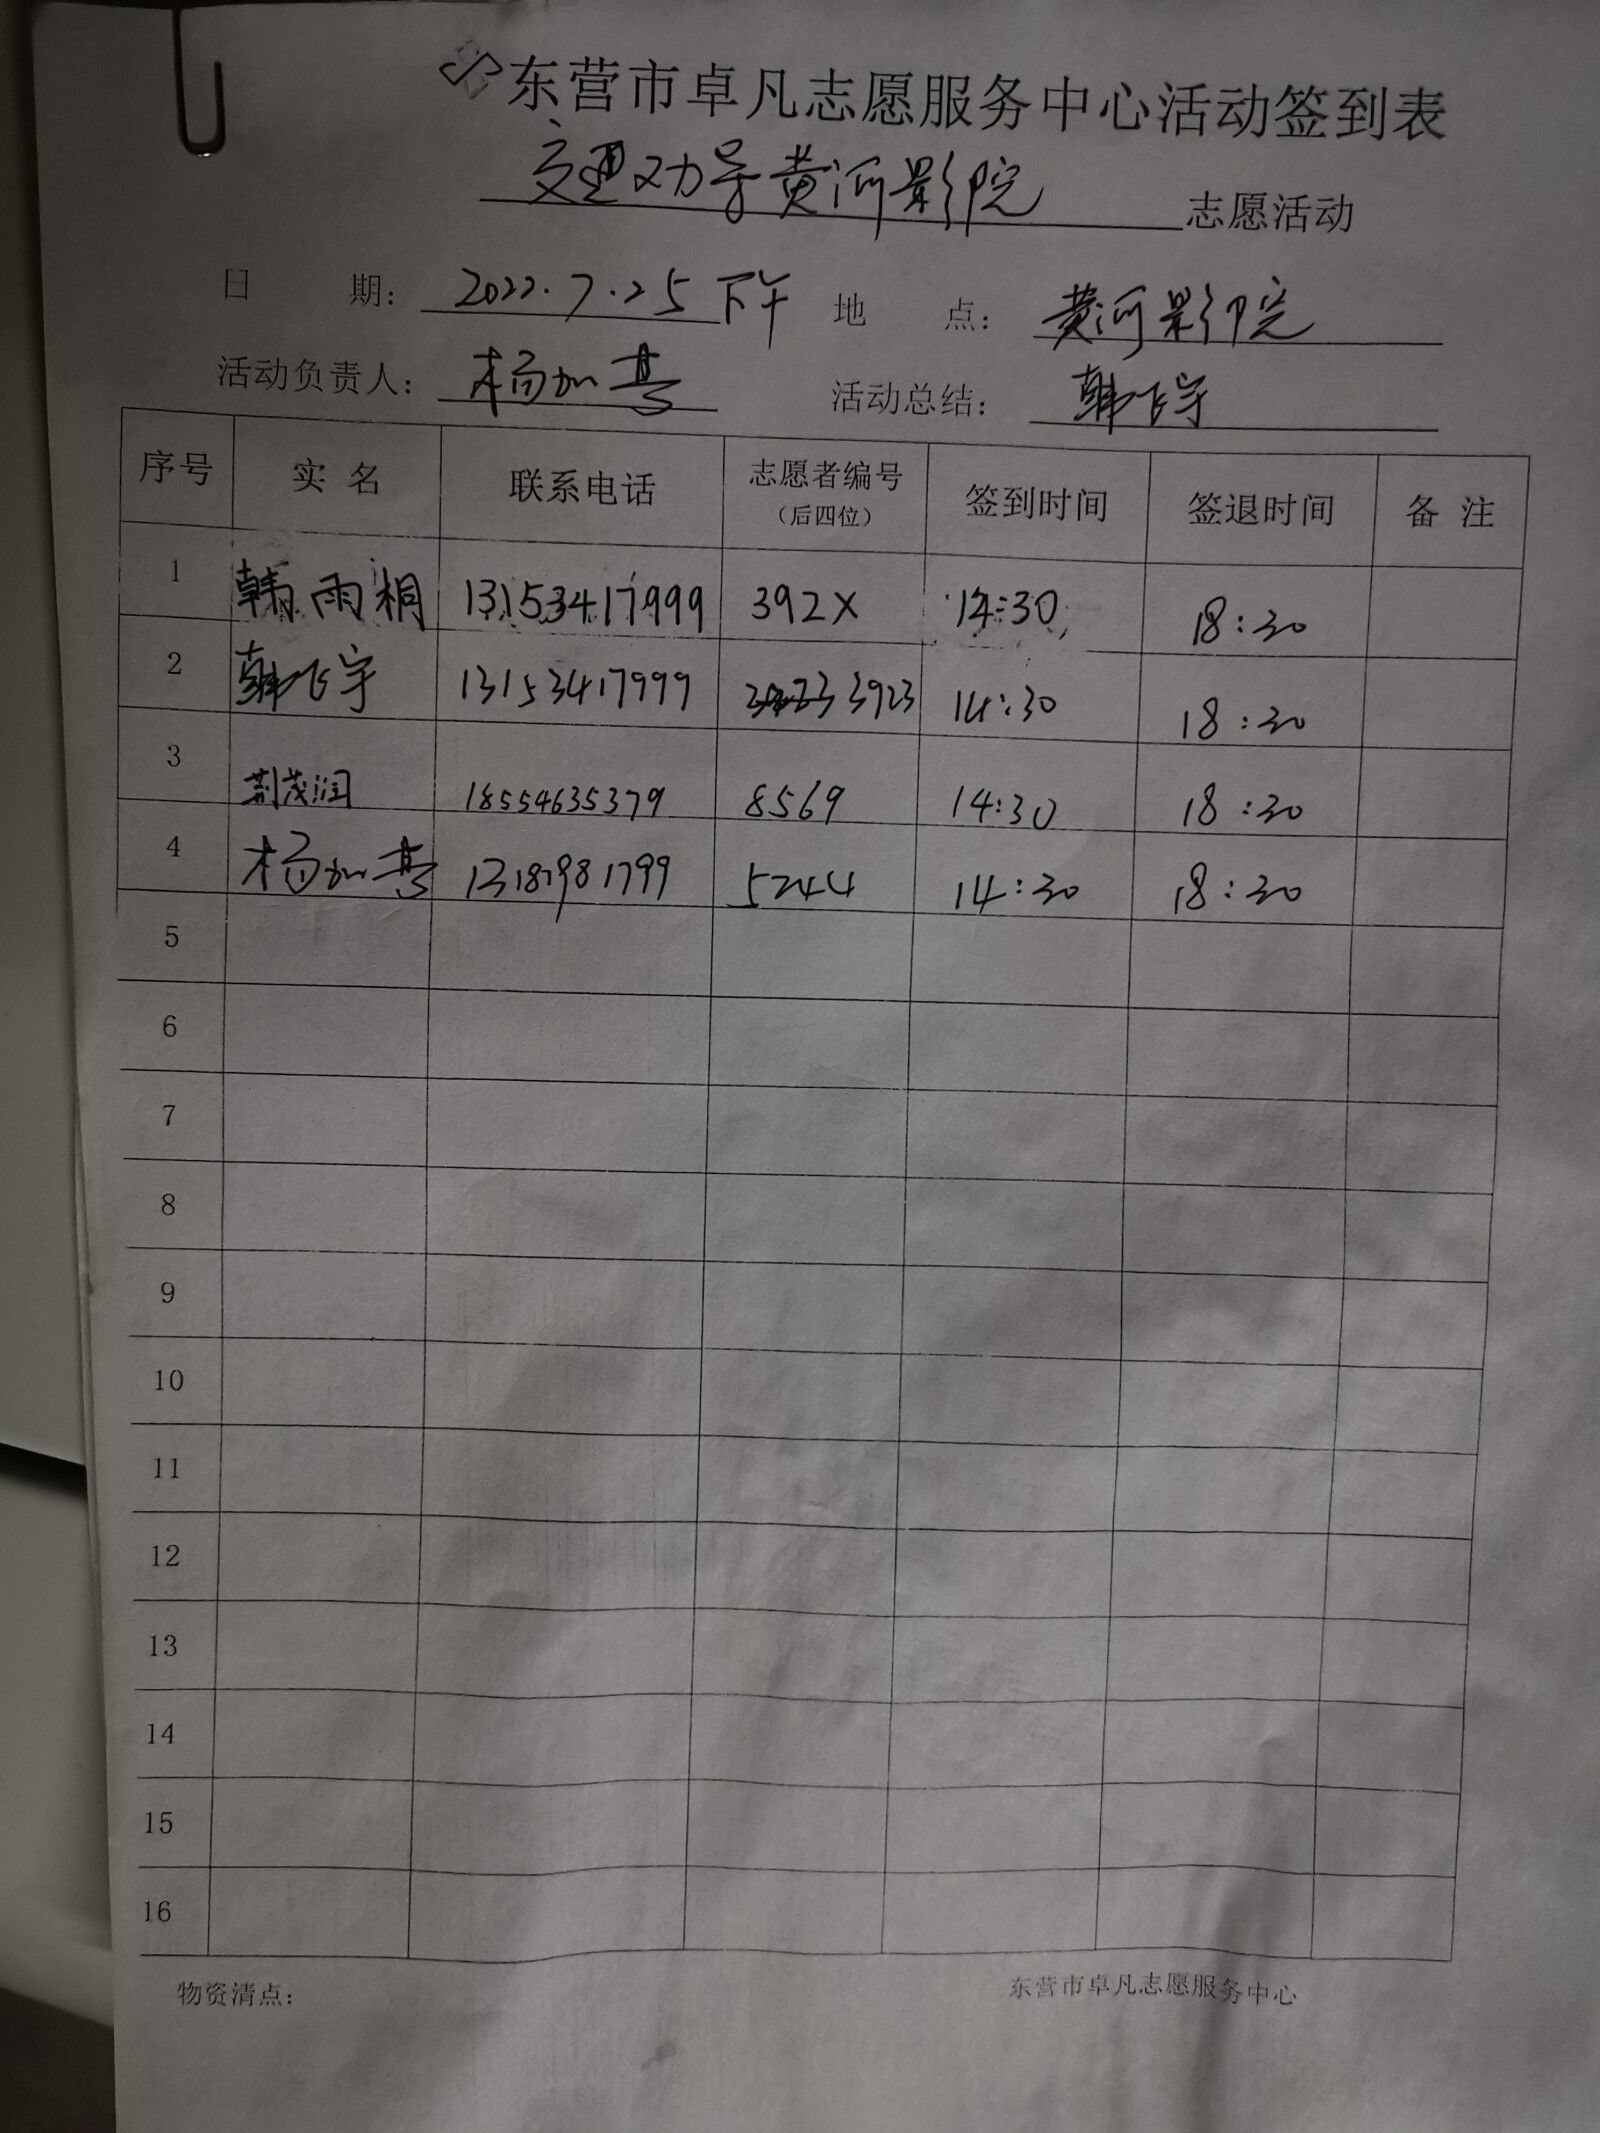 东营市卓凡志愿服务中心活动签到表
交通劝导黄河影院 志愿活动
日 期： 2022.7.25下午 地 点： 黄河影院
活动负责人： 杨加 活动总结： 韩飞宇
序号 实名 联系电话 志愿者编号（后四位） 签到时间 签退时间 备注
1 韩雨桐 13153417999 392X 14:30 18:30
2 韩飞宇 13153417999 3923 14:30 18:30
3 荆茂润 18554635379 8569 14:30 18:30
4 杨加 5244 14:30 18:30
5
6
7
8
9
10
11
12
13
14
15
16
物资清点： 东营市卓凡志愿服务中心